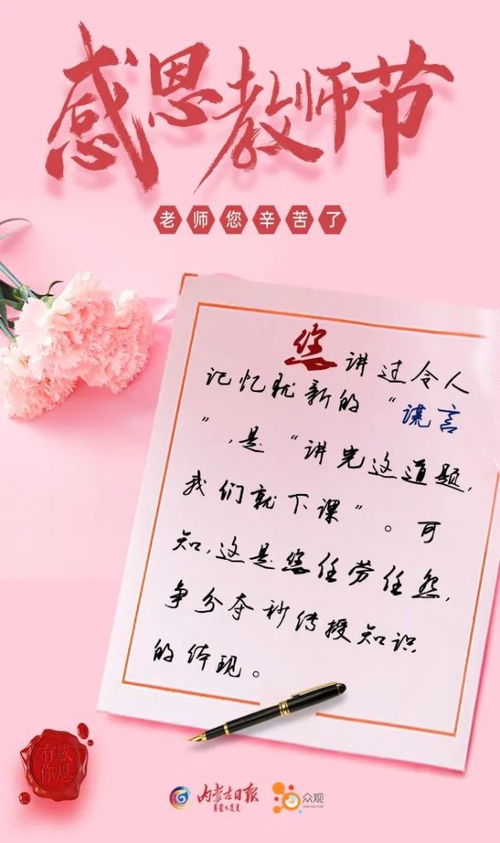 感恩教师节
老师您辛苦了
您讲过令人
记忆犹新的“谎言
”,是“讲完这道题,
我们就下课”。可
知,这是您任劳任怨,
争分夺秒传授知识
的体现。
有感
你恩
内蒙古日报
众观